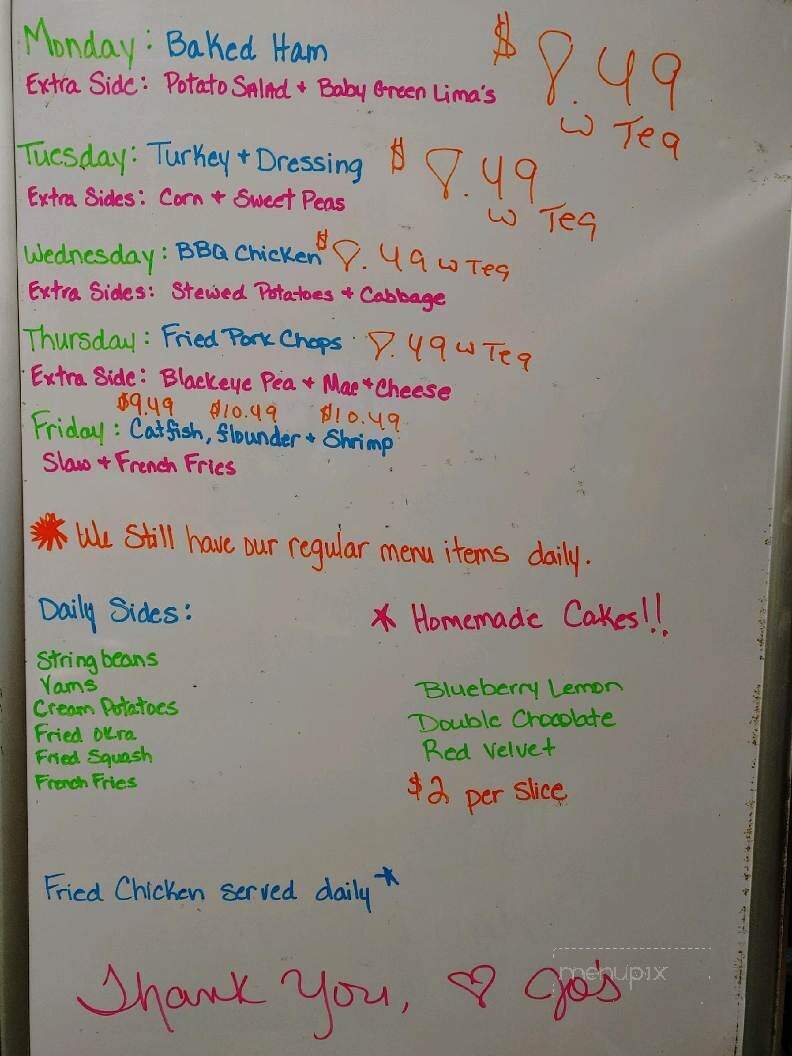 Monday: Baked Ham $8.49
Extra Side: Potato Salad + Baby Green Lima's w Tea
Tuesday: Turkey + Dressing $8.49
Extra Sides: Corn + Sweet Peas w Tea
Wednesday: BBQ Chicken $8.49 w Tea
Extra Sides: Stewed Potatoes + Cabbage
Thursday: Fried Pork Chops 8.49 w Tea
Extra Side: Blackeye Pea + Mac + Cheese
$9.49 $10.49 $10.49
Friday: Catfish, flounder + Shrimp
Slaw + French Fries
* We Still have our regular menu items daily.
Daily Sides:
Stringbeans
Yams
Cream Potatoes
Fried Okra
Fried Squash
French Fries
* Homemade Cakes!!
Blueberry Lemon
Double Chocolate
Red Velvet
$2 per slice
Fried Chicken served daily*
Thank You, ♡ Jo's
menupix